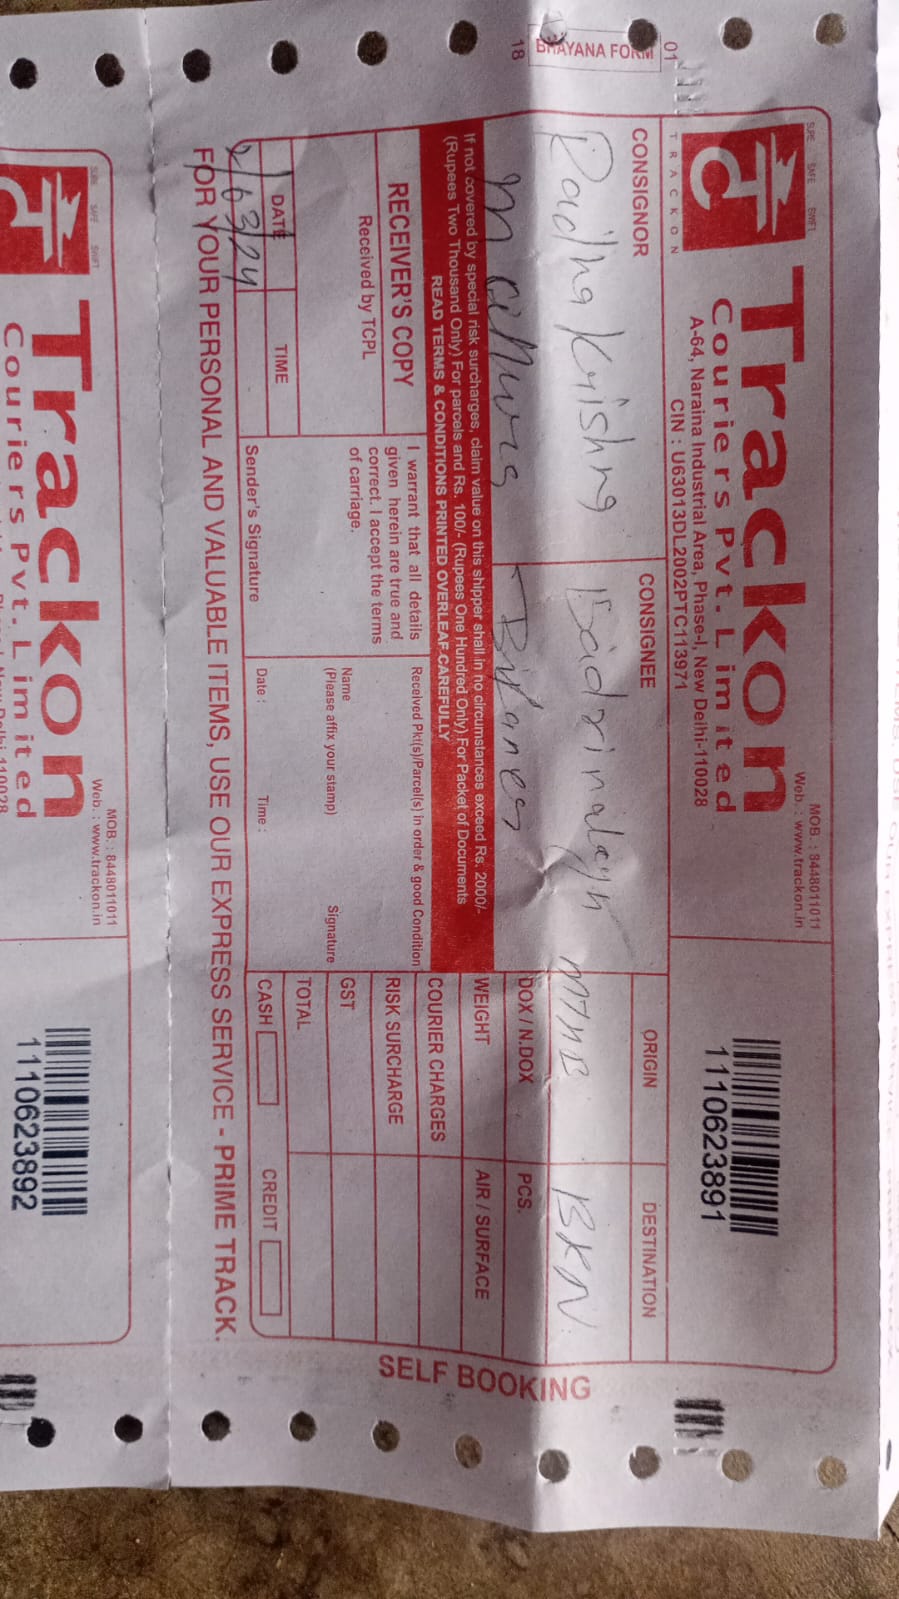 01
BHAYANA FORM
18
SURE SAFE SWIFT
TRACKON
Trackon
Couriers Pvt. Limited
A-64, Naraina Industrial Area, Phase-I, New Delhi-110028
CIN : U63013DL2002PTC113971
MOB. : 8448011011
Web. : www.trackon.in
1110623891
CONSIGNOR
CONSIGNEE
ORIGIN
DESTINATION
Radha Krishna
Badrinalayn
BKN
DOX / N.DOX
PCS.
Bikaner
WEIGHT
AIR / SURFACE
If not covered by special risk surcharges, claim value on this shipper shall in no circumstances exceed Rs. 2000/-
(Rupees Two Thousand Only) For parcels and Rs. 100/- (Rupees One Hundred Only) For Packet of Documents
READ TERMS & CONDITIONS PRINTED OVERLEAF CAREFULLY
COURIER CHARGES
RECEIVER'S COPY
Received by TCPL
I warrant that all details
given herein are true and
correct. I accept the terms
of carriage.
Received Pkt(s)/Parcel(s) in order & good Condition
Name
(Please affix your stamp)
Signature
RISK SURCHARGE
GST
TOTAL
DATE
TIME
Sender's Signature
Date :
Time :
CASH
CREDIT
2/03/24
FOR YOUR PERSONAL AND VALUABLE ITEMS, USE OUR EXPRESS SERVICE - PRIME TRACK.
SELF BOOKING
SURE SAFE SWIFT
Trackon
Couriers Pvt. Limited
MOB. : 8448011011
Web. : www.trackon.in
1110623892